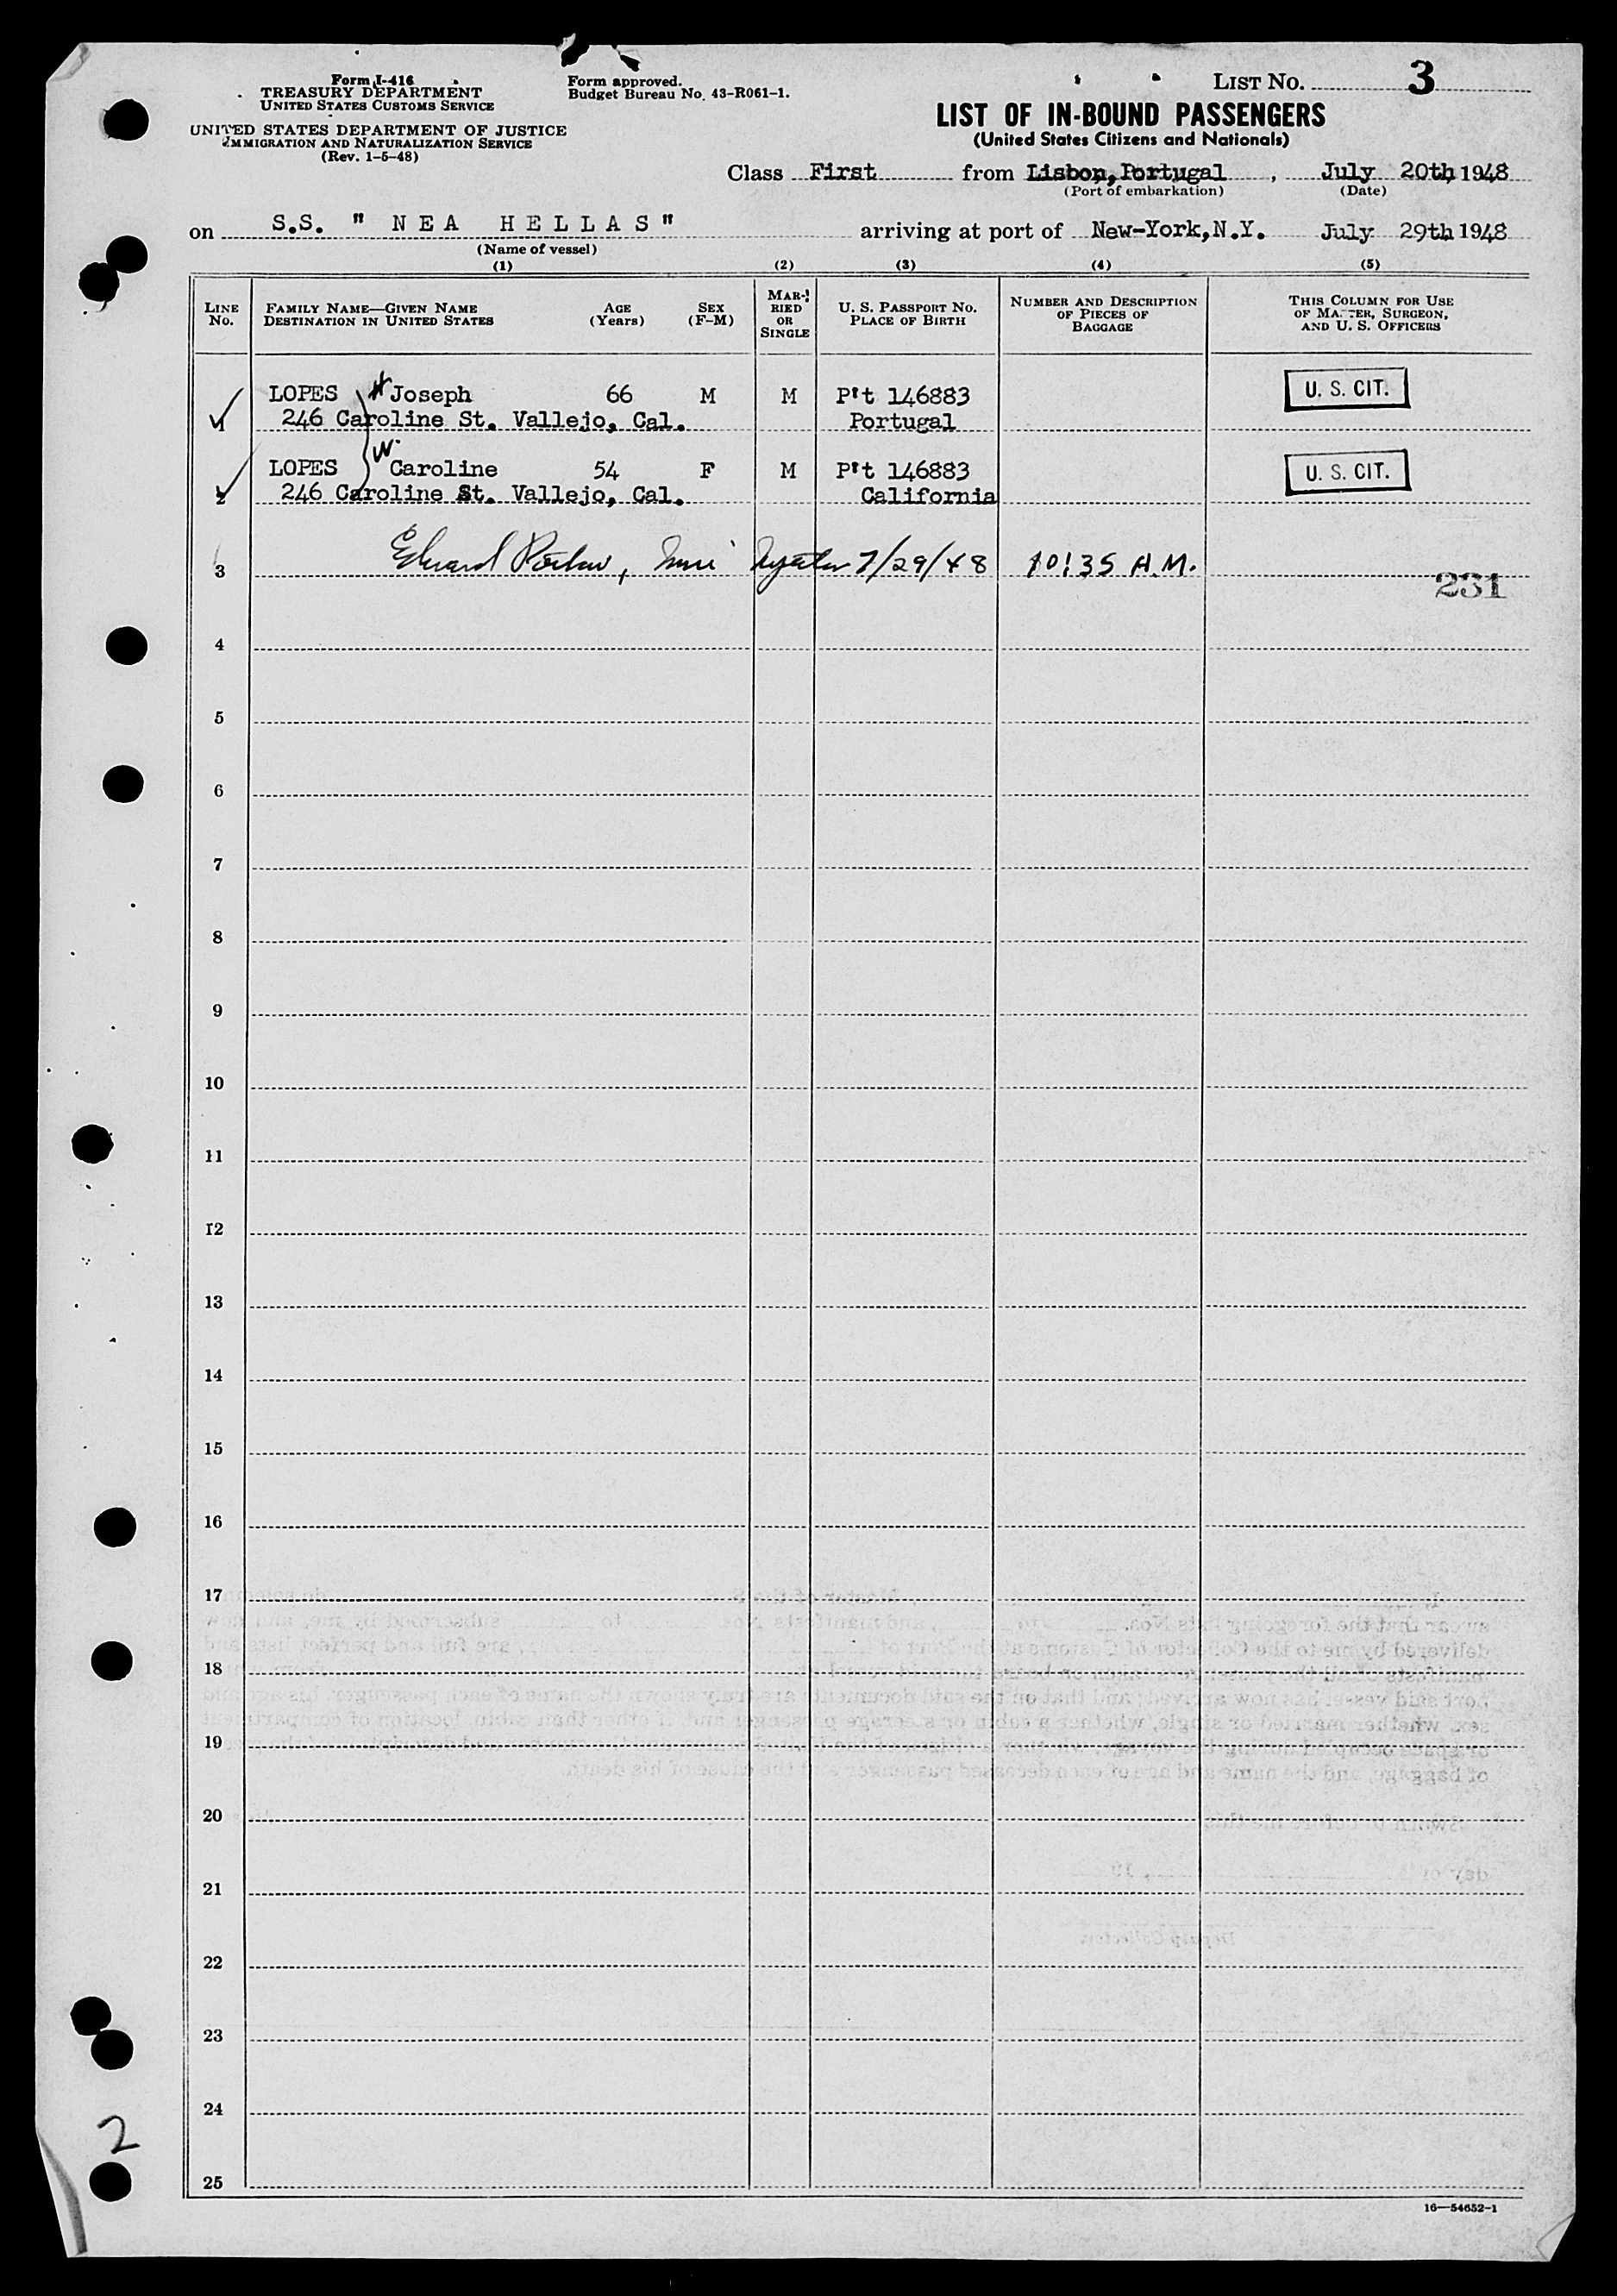 Form I-416
TREASURY DEPARTMENT
UNITED STATES CUSTOMS SERVICE
UNITED STATES DEPARTMENT OF JUSTICE
IMMIGRATION AND NATURALIZATION SERVICE
(Rev. 1-5-48)
Form approved.
Budget Bureau No. 43-R061-1.
LIST NO. 3
LIST OF IN-BOUND PASSENGERS
(United States Citizens and Nationals)
Class First from Lisbon, Portugal, July 20th 1948
(Port of embarkation) (Date)
on S.S. " NEA HELLAS " arriving at port of New-York, N.Y. July 29th 1948
(Name of vessel)
(1) (2) (3) (4) (5)
LINE No. FAMILY NAME—GIVEN NAME DESTINATION IN UNITED STATES AGE (Years) SEX (F-M) MARRIED OR SINGLE U. S. PASSPORT NO. PLACE OF BIRTH NUMBER AND DESCRIPTION OF PIECES OF BAGGAGE THIS COLUMN FOR USE OF MASTER, SURGEON, AND U. S. OFFICERS
LOPES H Joseph 66 M M P't 146883 U. S. CIT.
1 246 Caroline St. Vallejo, Cal. Portugal
LOPES W. Caroline 54 F M P't 146883 U. S. CIT.
2 246 Caroline St. Vallejo, Cal. California
3 Edward 7/29/48 10:35 A.M.
231
4
5
6
7
8
9
10
11
12
13
14
15
16
17
18
19
20
21
22
23
24
25
2
16—54652-1